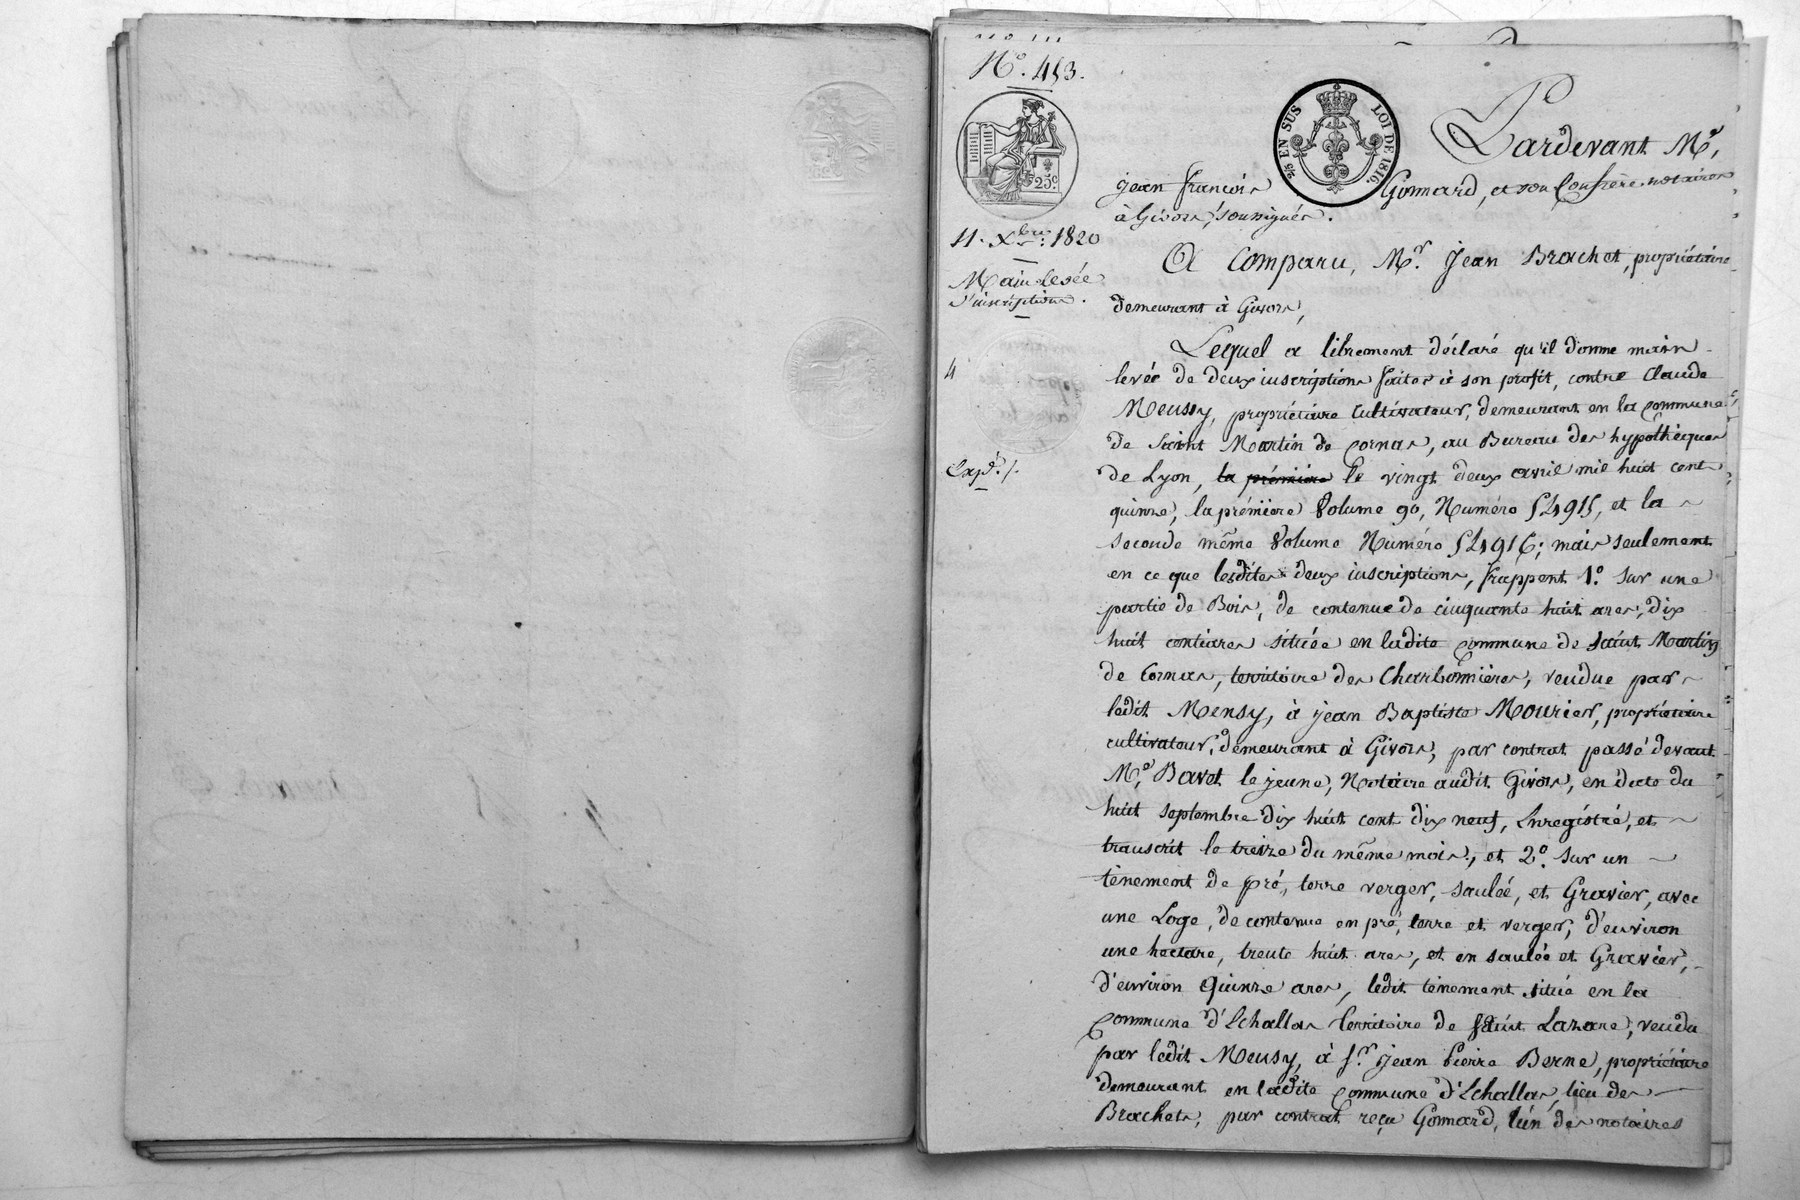 N.° 453.
25.c
2/5 EN SUS
LOI DE 1816.
11. Xbre: 1820
Mainlevée
d'inscriptions.
4
Expé. /.
Pardevant Me,
jean françois Gonnard, et son Confrère notaires
à Givors, soussignés.
A Comparu, Mr. jean Brachet, propriétaire
demeurant à Givors,
Lequel a librement déclaré qu'il donne main
levée de deux inscriptions faites à son profit, contre Claude
Meusy, propriétaire Cultivateur, demeurant en la Commune
de Saint Martin de Cornas, au Bureau des hypothèques
de Lyon, la prémiére le vingt deux avril mil huit cent
quinze, la prémiére Volume 90, Numéro 54915, et la
seconde même Volume Numéro 54916; mais seulement
en ce que lesdites deux inscriptions, frappent 1.° sur une
partie de Bois, de contenue de cinquante huit ares, dix
huit centiares située en ladite Commune de saint Martin
de Cornas, territoire des Charbonnières, vendue par
ledit Meusy, à jean Baptiste Mourier, propriétaire
cultivateur, demeurant à Givors, par contrat passé devant
Me. Bavet le jeune, Notaire audit Givors, en date du
huit septembre dix huit cent dix neuf, Enregistré, et
transcrit le treize du même mois, et 2.° sur un
tènement de pré, terre verger, saulée, et Gravier, avec
une Loge, de contenue en pré, terre et verger, d'environ
une hectare, trente huit ares, et en saulée et Gravier,
d'environ Quinze ares, ledit tènement situé en la
Commune d'Echallas territoire de saint Lazare, vendu
par ledit Meusy, à Sr. jean Pierre Berne, propriétaire
demeurant en ladite Commune d'Echallas, lieu des
Brachets, par contrat reçu Gonnard, l'un des notaires